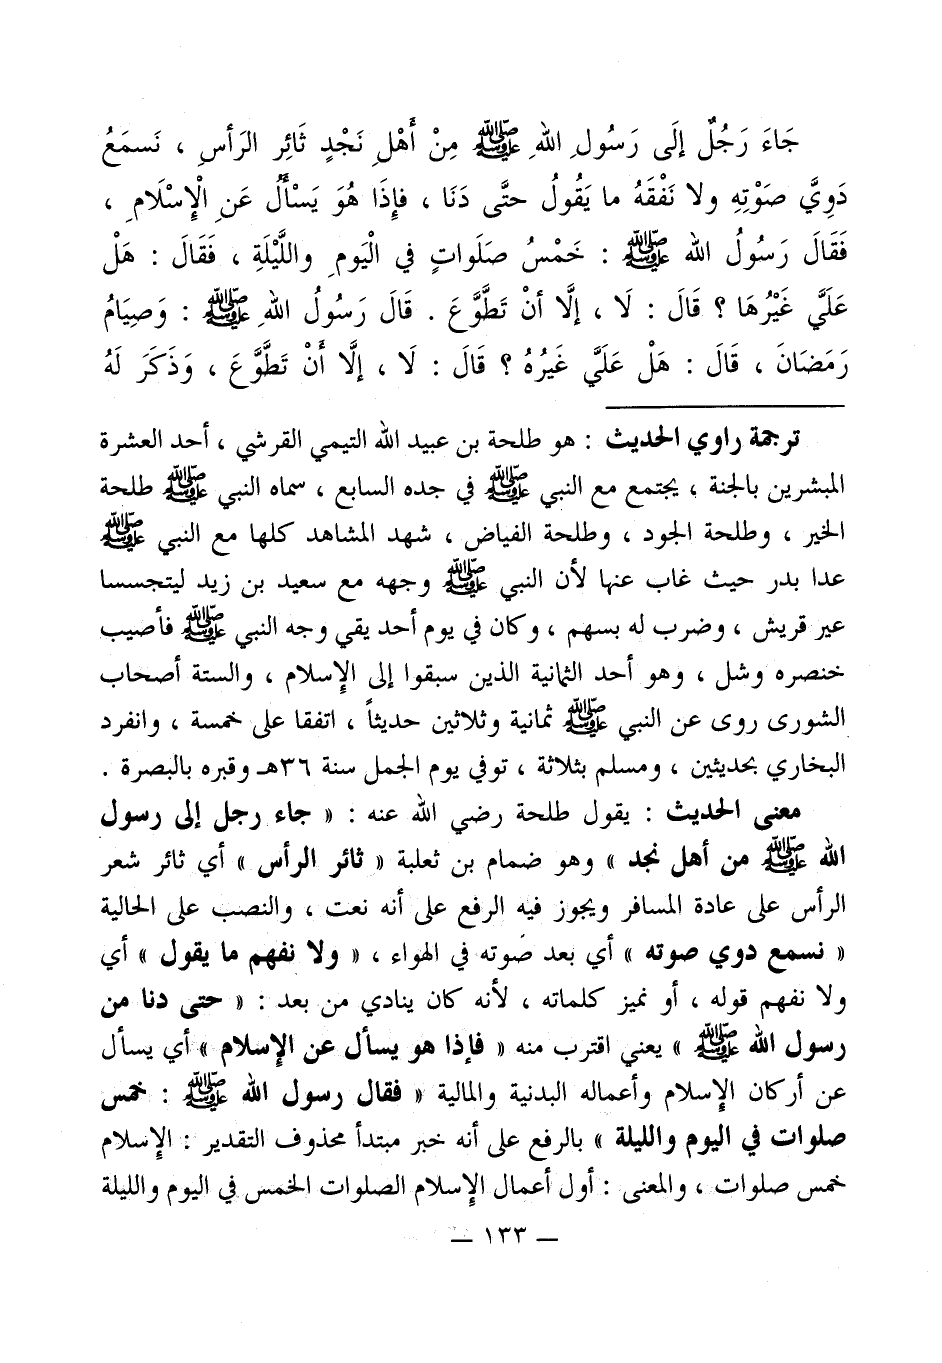 جَاءَ رَجُلٌ إلَى رَسُولِ اللهِ ﷺ مِنْ أَهْلِ نَجْدٍ ثَائِر الرَأسِ ، نَسمَعُ
دَوِيَّ صَوْتِهِ ولا نَفْقَهُ ما يَقُولُ حتَّى دَنَا ، فإِذَا هُوَ يَسْأَلُ عَنِ الْإِسْلَامِ ،
فَقَالَ رَسُولُ الله ﷺ : خَمْسُ صَلَواتٍ في الْيَومِ واللَّيْلَةِ ، فَقَالَ : هَلْ
عَلَيَّ غَيْرُهَا ؟ قَالَ : لَا ، إلَّا أنْ تَطَّوَّعَ . قَالَ رَسُولُ اللهِ ﷺ : وَصِيَامُ
رَمَضَانَ ، قَالَ : هَلْ عَلَيَّ غَيْرُهُ ؟ قَالَ : لَا ، إلَّا أَنْ تَطَّوَّعَ ، وَذَكَرَ لَهُ
ترجمة راوي الحديث : هو طلحة بن عبيد الله التيمي القرشي ، أحد العشرة
المبشرين بالجنة ، يجتمع مع النبي ﷺ في جده السابع ، سماه النبي ﷺ طلحة
الخير ، وطلحة الجود ، وطلحة الفياض ، شهد المشاهد كلها مع النبي ﷺ
عدا بدر حيث غاب عنها لأن النبي ﷺ وجهه مع سعيد بن زيد ليتجسسا
عير قريش ، وضرب له بسهم ، وكان في يوم أحد يقي وجه النبي ﷺ فأصيب
خنصره وشل ، وهو أحد الثمانية الذين سبقوا إلى الإسلام ، والستة أصحاب
الشورى روى عن النبي ﷺ ثمانية وثلاثين حديثاً ، اتفقا على خمسة ، وانفرد
البخاري بحديثين ، ومسلم بثلاثة ، توفي يوم الجمل سنة ٣٦هـ وقبره بالبصرة .
معنى الحديث : يقول طلحة رضي الله عنه : « جاء رجل إلى رسول
الله ﷺ من أهل نجد » وهو ضمام بن ثعلبة « ثائر الرأس » أي ثائر شعر
الرأس على عادة المسافر ويجوز فيه الرفع على أنه نعت ، والنصب على الحالية
« نسمع دوي صوته » أي بعد صوته في الهواء ، « ولا نفهم ما يقول » أي
ولا نفهم قوله ، أو نميز كلماته ، لأنه كان ينادي من بعد : « حتى دنا من
رسول الله ﷺ » يعني اقترب منه « فإذا هو يسأل عن الإسلام » أي يسأل
عن أركان الإسلام وأعماله البدنية والمالية « فقال رسول الله ﷺ : خمس
صلوات في اليوم والليلة » بالرفع على أنه خبر مبتدأ محذوف التقدير : الإسلام
خمس صلوات ، والمعنى : أول أعمال الإسلام الصلوات الخمس في اليوم والليلة
— ١٣٣ —